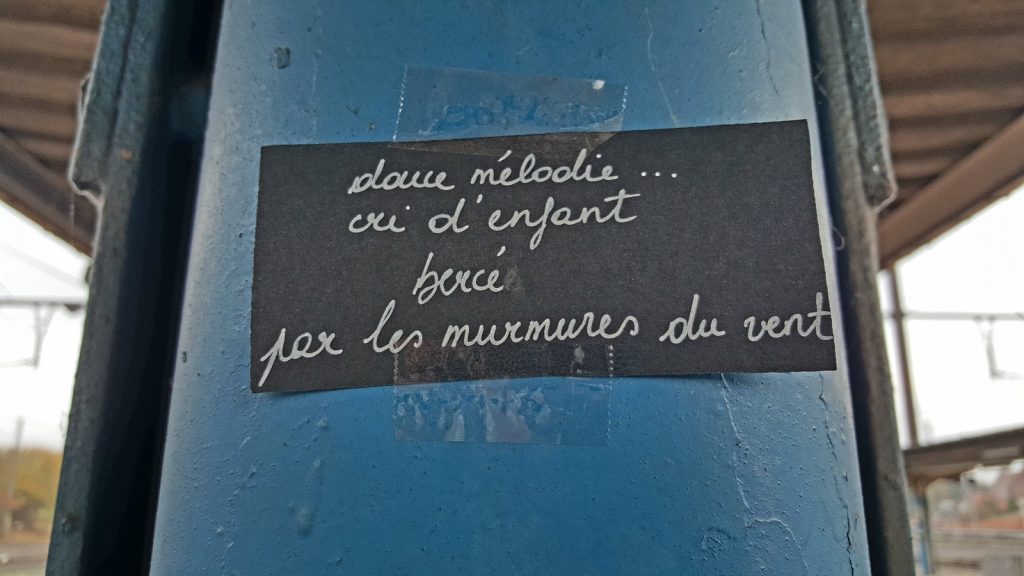 douce mélodie...
cri d'enfant
bercé
par les murmures du vent